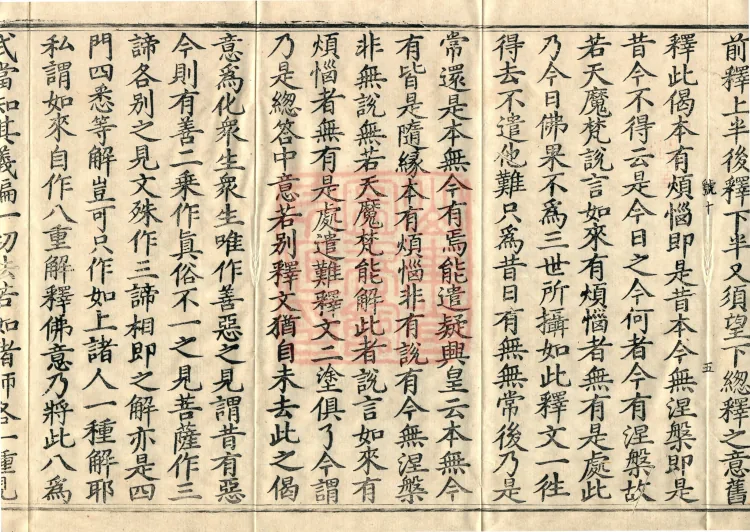 前釋上半後釋下半又須望下總釋之意舊
號十
五
釋此偈本有煩惱即是昔本今無涅槃即是
昔今不得云是今日之今何者今有涅槃故
若天魔梵說言如來有煩惱者無有是處此
乃今日佛果不為三世所攝如此釋文一往
得去不遣他難只為昔日有無無常後乃是
常還是本無今有焉能遣疑興皇云本無今
有皆是隨緣本有煩惱非有說有今無涅槃
非無說無若天魔梵能解此者說言如來有
煩惱者無有是處遣難釋文二塗俱了今謂
乃是總答中意若別釋文猶自未去此之偈
意為化眾生眾生唯作善惡之見謂昔有惡
今則有善二乘作真俗不一之見菩薩作三
諦各別之見文殊作三諦相即之解亦是四
門四悉等解豈可只作如上諸人一種解耶
私謂如來自作八重解釋佛意乃將此八為
式當知其義徧一切法若如諸師各一種見